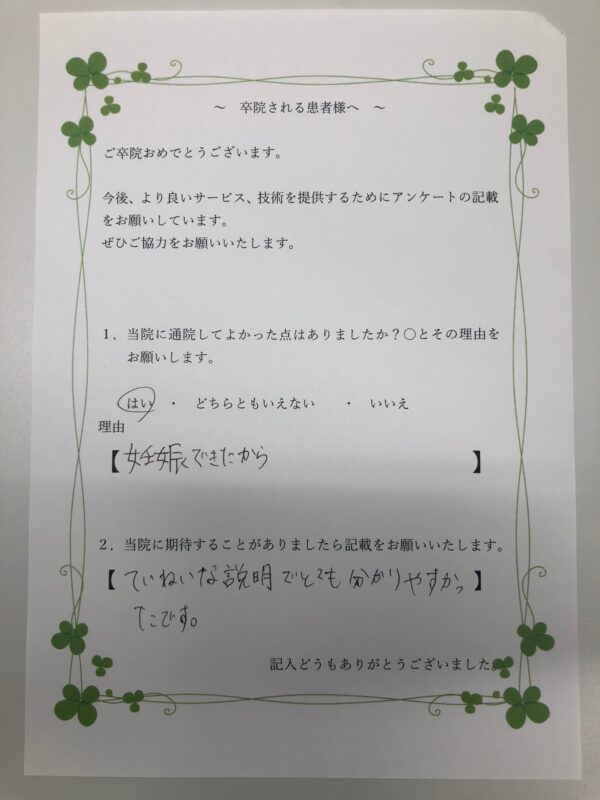 ～ 卒院される患者様へ ～
ご卒院おめでとうございます。
今後、より良いサービス、技術を提供するためにアンケートの記載
をお願いしています。
ぜひご協力をお願いいたします。
１．当院に通院してよかった点はありましたか？○とその理由を
お願いします。
はい ・ どちらともいえない ・ いいえ
理由
【妊娠できたから】
２．当院に期待することがありましたら記載をお願いいたします。
【ていねいな説明でとても分かりやすかっ】
たです。
記入どうもありがとうございました。